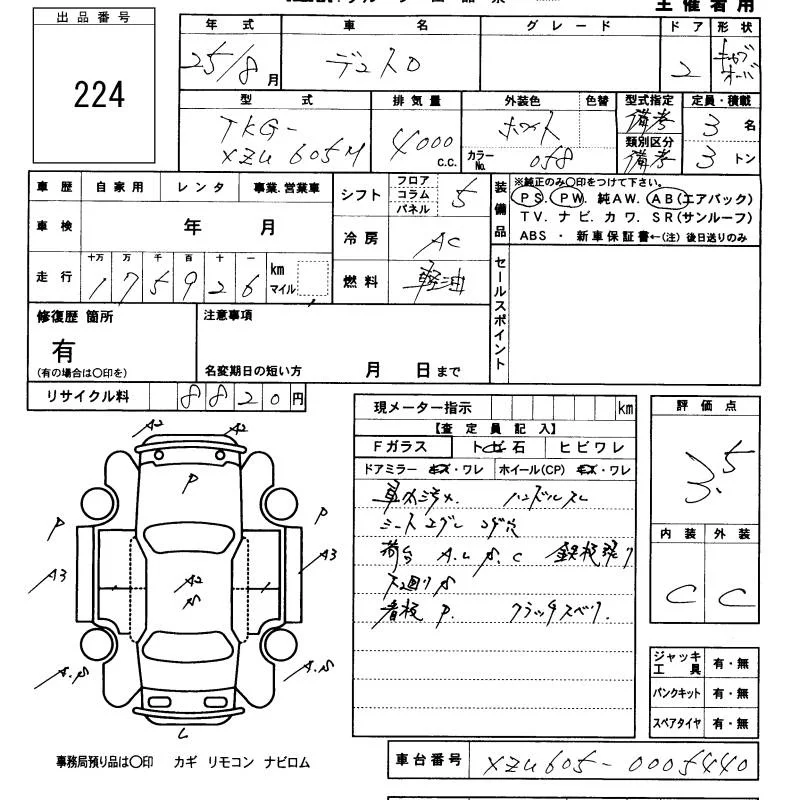 主催者用
出品番号
224
年式 車名 グレード ドア 形状
25/8月 デュトロ 2 キャブオーバ
型式 排気量 外装色 色替 型式指定 定員・積載
TKG-
XZU605M 4000 c.c. ホワイト 備考 3名
カラーNo. 058 類別区分 備考 3トン
車歴 自家用 レンタ 事業.営業車 シフト フロア コラム パネル 5
装備品 ※純正のみ○印をつけて下さい。
PS. PW. 純AW. AB(エアバック)
TV. ナビ. カワ. SR(サンルーフ)
ABS ・ 新車保証書←(注) 後日送りのみ
車検 年 月 冷房 AC
走行 十万 万 千 百 十 一 km マイル 燃料 軽油
175926
セールスポイント
修復歴 箇所 注意事項
有
(有の場合は○印を) 名変期日の短い方 月 日まで
リサイクル料 8820円
現メーター指示 km
【査定員記入】
Fガラス トビ石 ヒビワレ
ドアミラー キズ・ワレ ホイール(CP) キズ・ワレ
車内汚れ ハンドルスレ
シートコゲ穴
荷台 A.U.S.C 鉄板張り
下廻りS
看板 P. クラッチスベリ.
評価点
3.5
内装 外装
C C
A2 A2
P
P P
A3 A3
A2
S
A.S A.S
L
ジャッキ工具 有・無
パンクキット 有・無
スペアタイヤ 有・無
事務局預り品は○印 カギ リモコン ナビロム
車台番号 XZU605-0005440